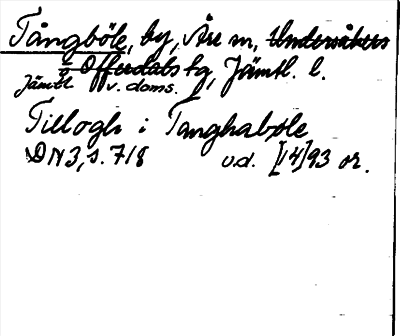 Tångböle, by, Åre sn, Undersåkers
& Offerdals tg, Jämtl. l.
Jämtl v. doms.
Tillogh i Tanghabøle
DN 3, s. 718 u.d. [14]93 or.